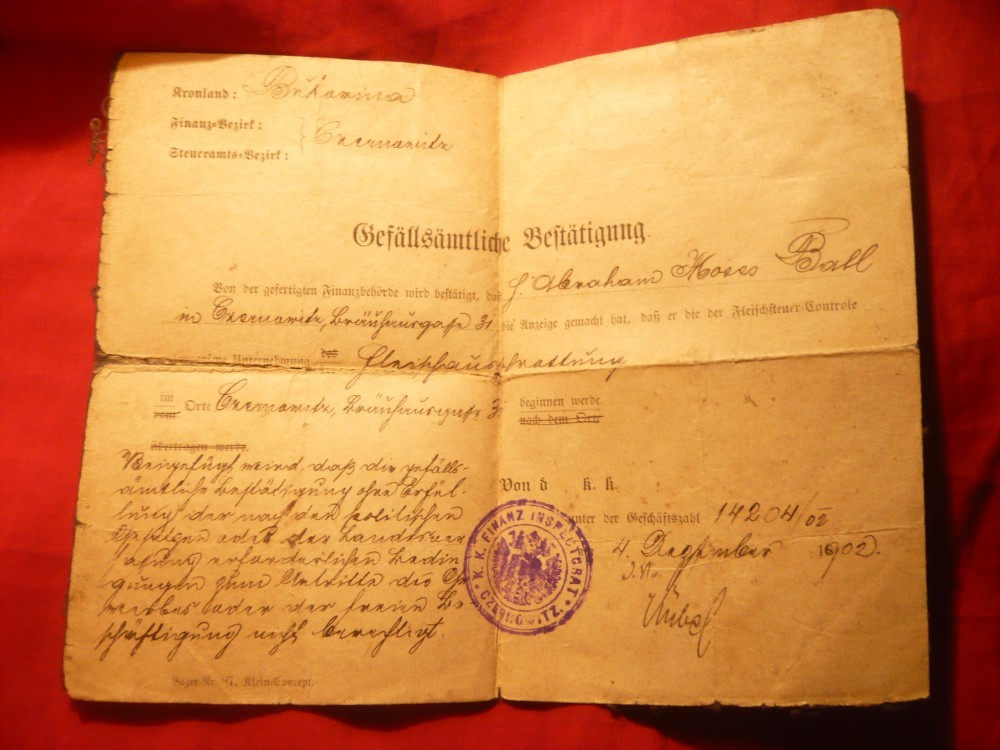 Kronland: Bukowina
Finanz-Bezirk:
Steueramts-Bezirk: } Czernowitz
Gefällsämtliche Bestätigung.
Von der gefertigten Finanzbehörde wird bestätigt, daß H. Abraham Moses Ball
in Czernowitz, Bräuhausgaße 31, die Anzeige gemacht hat, daß er die der Fleischsteuer-Controle
Unternehmung des Fleischausschrottung
im
vom Orte Czernowitz, Bräuhausgaße 31 beginnen werde
nach dem Orte
übertragen werde.
Beigefügt wird, daß die gefälls-
ämtliche Bestätigung ohne Erfül-
lung der nach den politischen
Gesetzen oder der Landesver
faßung erforderlichen Bedin
gungen zum Antritte des Ge
werbes oder der freien Be
schäftigung nicht berechtigt.
Von d k. k.
unter der Geschäftszahl 14204/02
4. Dezember 1902.
K. K. FINANZ INSPECTORAT CZERNOWITZ
Lager-Nr. 47. Klein-Concept.